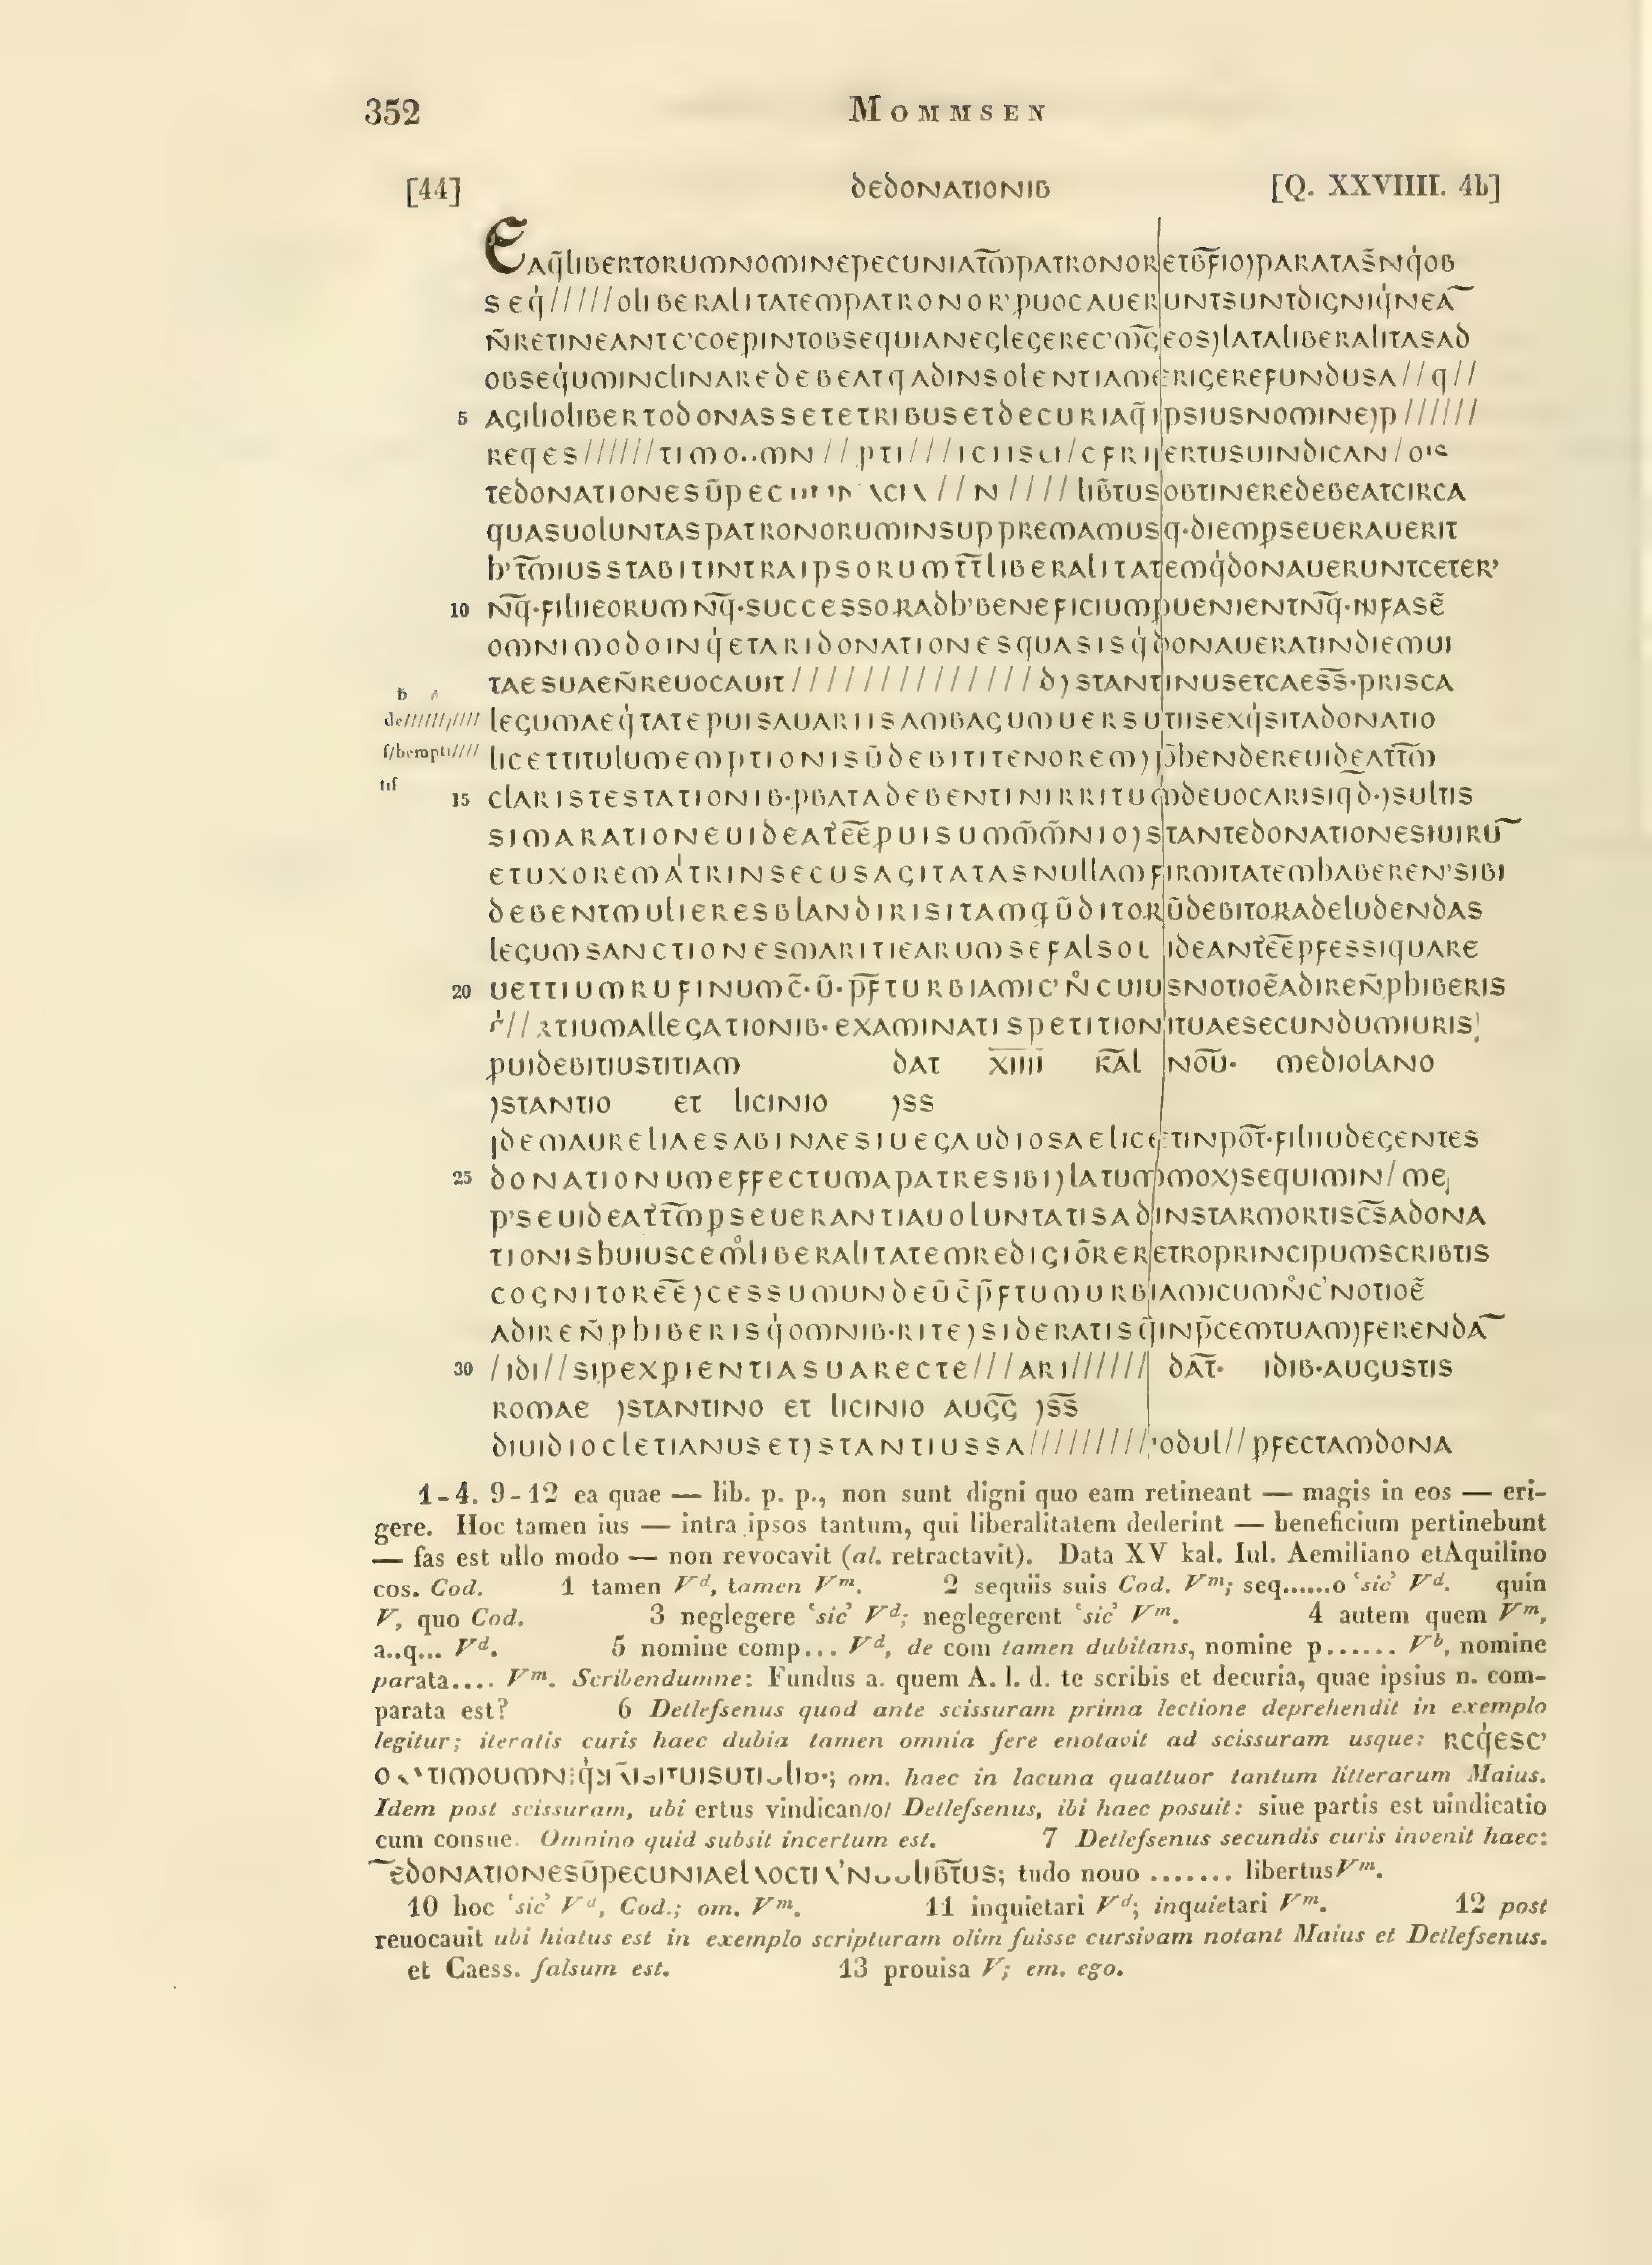 352 MOMMSEN
[44] DEDONATIONIB [Q. XXVIIII. 4b]
EAq̄LIBERTORUMNOMINEPECUNIAT̄M̄PATRONORETB̄F̄IO)PARATAS̄Nq̇OB
SEq̇/////OLIBERALITATEMPATRONOR'PUOCAUERUNTSUNTDIGNIq̇NEA̅
N̄RETINEANTC'COEPINTOBSEQUIANEGLEGEREC'M̄ḠEOS)LATALIBERALITASAD
OBSEq̇UMINCLINAREDEBEATqADINSOLENTIAMERIGEREFUNDUSA//q//
5 AGILIOLIBERTODONASSETETRIBUSETDECURIAq̄IPSIUSNOMINE)P//////
TEDONATIONESŪPEC //N////LIB̄TUSOBTINEREDEBEATCIRCA
QUASUOLUNTASPATRONORUMINSUPPREMAMUSq·DIEMPSEUERAUERIT
h'T̄M̄IUSSTABITINTRAIPSORUMT̄T̄LIBERALITATEMq̇DONAUERUNTCETER'
10 N̄q̄·FILIIEORUMN̄q̄·SUCCESSORADh'BENEFICIUMPUENIENTN̄q̄·NFASĒ
OMNIMODOINq̇ETARIDONATIONESQUASISq̇DONAUERATINDIEMUI
TAESUAEN̄REUOCAUIT///////////////D)STANTINUSETCAES̄S̄·PRISCA
LEGUMAEq̇TATEPUISAUARIISAMBAGUMUERSUTIISEXq̇SITADONATIO
LICETTITULUMEMPTIONISŪDEBITITENOREM)P̄hENDEREUIDEATT̄M̄
15 CLARISTESTATIONIB·PBATADEBENTINIRRITUMDEUOCARISIqD̄·)SULTIS
SIMARATIONEUIDEATĒĒPUISUMM̄M̄NIO)STANTEDONATIONESIUIRU̅
ETUXOREMATRINSECUSAGITATASNULLAMFIRMITATEMhABEREN'SIBI
DEBENTMULIERESBLANDIRISITAMqŪDITORŪDEBITORADELUDENDAS
LEGUMSANCTIONESMARITIEARUMSEFALSOL IDEANTĒĒPFESSIQUARE
20 UETTIUMRUFINUMC̄·Ū·P̄F̄TURBIAMIC'N̊CUIUSNOTIOĒADIREN̄PhIBERIS
//RTIUMALLEGATIONIB·EXAMINATISPETITIONITUAESECUNDUMIURIS
PUIDEBITIUSTITIAM DAT X̄ĪĪĪĪ K̄ĀL NŌŪ· MEDIOLANO
)STANTIO ET LICINIO )SS
IDEMAURELIAESABINAESIUEGAUDIOSAELICETINPŌT̄·FILIIUDEGENTES
25 DONATIONUMEFFECTUMAPATRESIBI)LATUMMOX)SEQUIMIN/ME
P'SEUIDEATT̄M̄PSEUERANTIAUOLUNTATISADINSTARMORTISC̄S̄ADONA
TIONISHUIUSCEM̊LIBERALITATEMREDIGIŌRERETROPRINCIPUMSCRIBTIS
COGNITORĒĒ)CESSUMUNDEŪC̄P̄FTUMURBIAMICUMN̊C'NOTIOĒ
ADIREN̄PhIBERISq̇OMNIB·RITE)SIDERATISq̄INP̄CEMTUAM)FERENDA̅
30 /IDI//SIPEXPIENTIASUARECTE///ARI////// DĀT̄· IDIB·AUGUSTIS
ROMAE )STANTINO ET LICINIO AUḠḠ )S̄S̄
DIUIDIOCLETIANUSET)STANTIUSSA/////////'ODUL//PFECTAMDONA
1-4. 9-12 ea quae — lib. p. p., non sunt digni quo eam retineant — magis in eos — eri-
gere. Hoc tamen ius — intra ipsos tantum, qui liberalitatem dederint — beneficium pertinebunt
— fas est ullo modo — non revocavit (al. retractavit). Data XV kal. Iul. Aemiliano etAquilino
cos. Cod. 1 tamen Vᵈ, tamen Vᵐ. 2 sequiis suis Cod. Vᵐ; seq......o ‘sic’ Vᵈ. quin
V, quo Cod. 3 neglegere ‘sic’ Vᵈ; neglegerent ‘sic’ Vᵐ. 4 autem quem Vᵐ,
a..q... Vᵈ. 5 nomine comp... Vᵈ, de com tamen dubitans, nomine p...... Vᵇ, nomine
parata.... Vᵐ. Scribendumne: Fundus a. quem A. l. d. te scribis et decuria, quae ipsius n. com-
parata est? 6 Detlefsenus quod ante scissuram prima lectione deprehendit in exemplo
legitur; iteratis curis haec dubia tamen omnia fere enotavit ad scissuram usque: RCq̇ESC'
om. haec in lacuna quattuor tantum litterarum Maius.
Idem post scissuram, ubi ertus vindican/o/ Detlefsenus, ibi haec posuit: siue partis est uindicatio
cum consue. Omnino quid subsit incertum est. 7 Detlefsenus secundis curis invenit haec:
EDONATIONESŪPECUNIAE LIB̄T̄US; tudo nouo ........ libertus Vᵐ.
10 hoc ‘sic’ Vᵈ, Cod.; om. Vᵐ. 11 inquietari Vᵈ; inquietari Vᵐ. 12 post
reuocauit ubi hiatus est in exemplo scripturam olim fuisse cursivam notant Maius et Detlefsenus.
et Caess. falsum est. 13 prouisa V; em. ego.